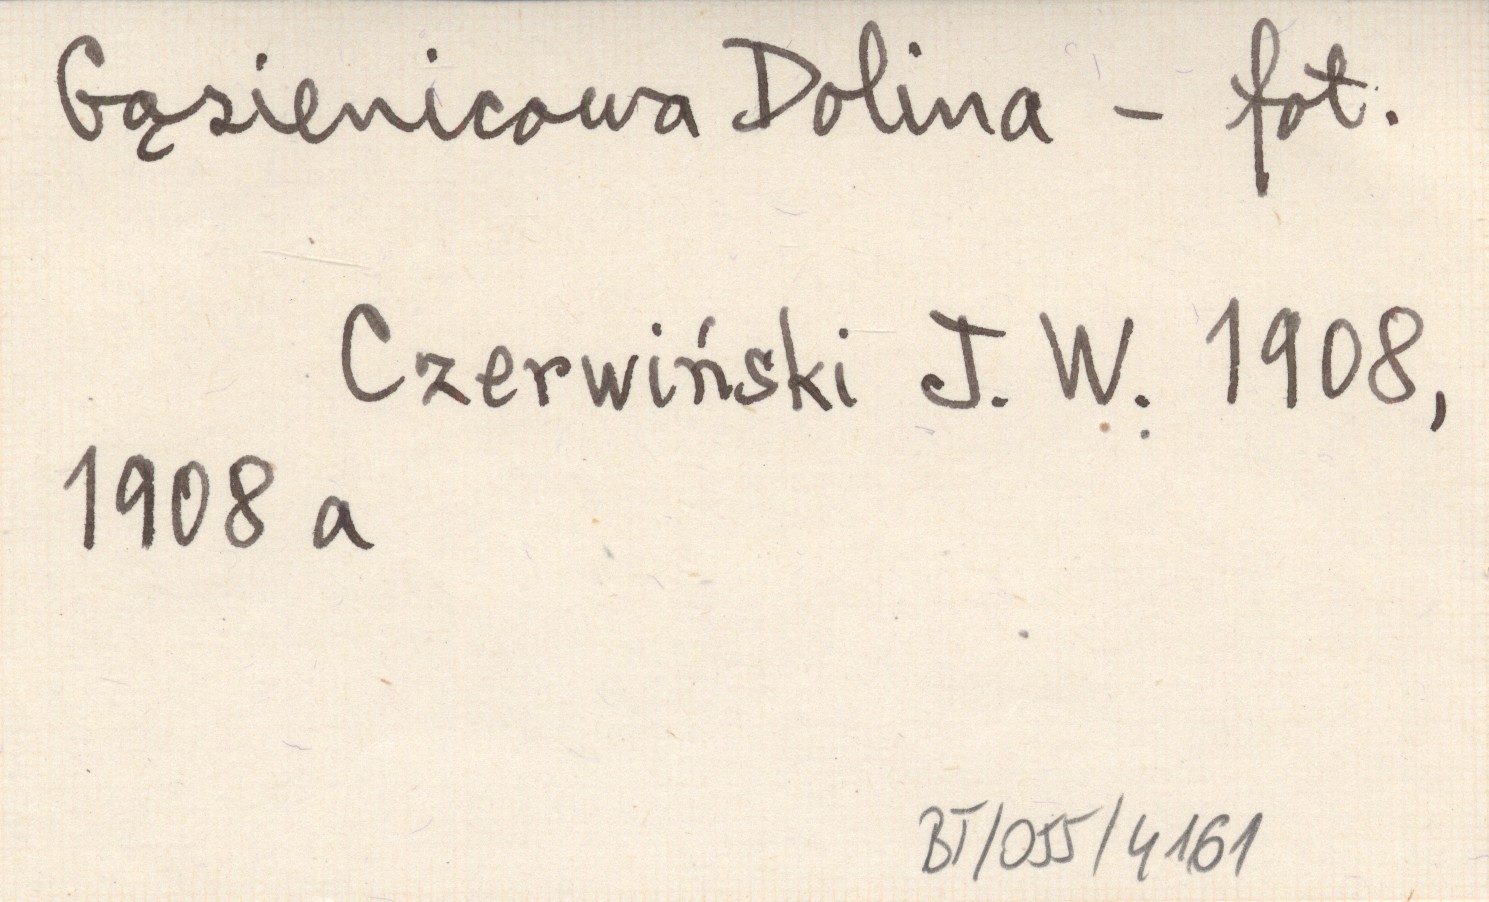 Gąsienicowa Dolina - fot.
Czerwiński J. W. 1908,
1908 a
BT/055/4161